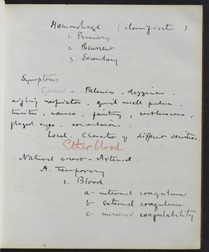 Haemorrhage (classification)
1. Primary
2. Recurrent
3. Secondary
Symptoms
General - Paleness, dizziness,
sighing respiration, quick small pulse,
tinnitus, nausea, fainting, restlessness,
glazed eyes, convulsions.
Local. Character of different varieties.
Natural arrest - Arterial
A. Temporary
1. Blood
a - internal coagulum
b - external coagulum
c - increased coagulability